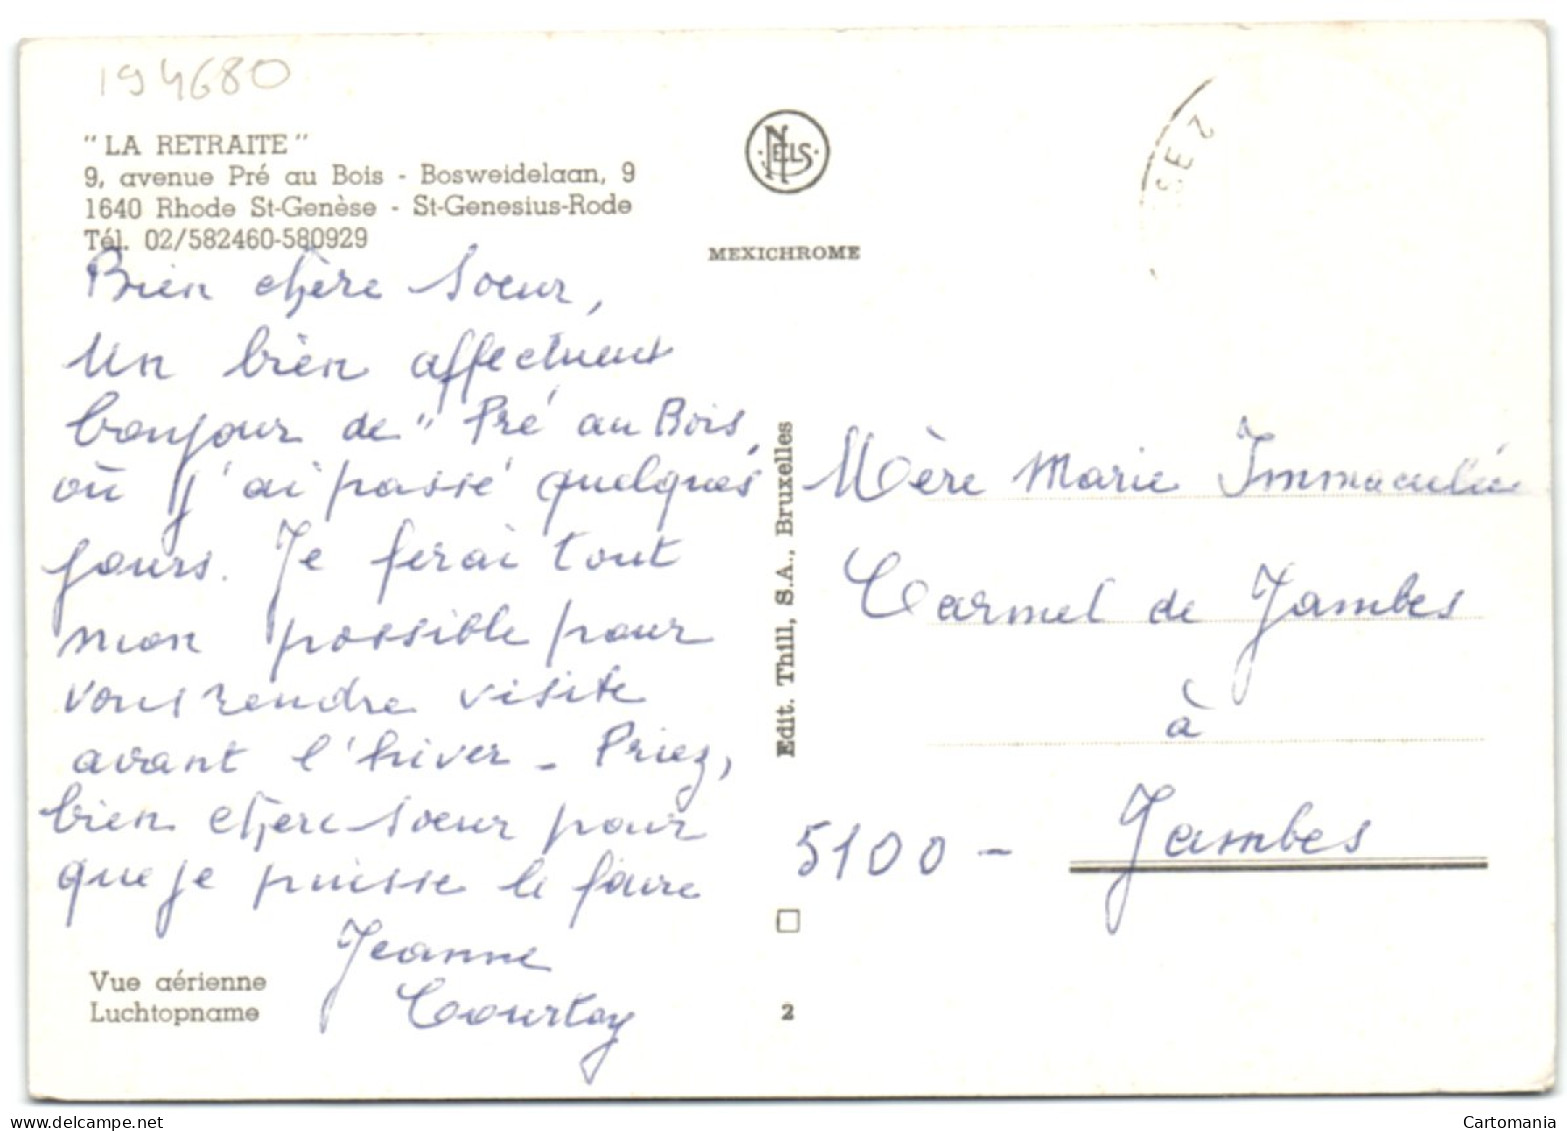 194680
"LA RETRAITE"
9, avenue Pré au Bois - Bosweidelaan, 9
1640 Rhode St-Genèse - St-Genesius-Rode
Tél. 02/582460-580929
NELS
MEXICHROME
Bien chère Soeur,
Un bien affectueux
bonjour de "Pré au Bois,
où j'ai passé quelques
jours. Je ferai tout
mon possible pour
vous rendre visite
avant l'hiver - Priez,
bien chère soeur pour
que je puisse le faire
Jeanne
Courtoy
Vue aérienne
Luchtopname
Edit. Thill, S.A., Bruxelles
2
Mère Marie Immaculée
Carmel de Jambes
à
5100 - Jambes
Cartomania